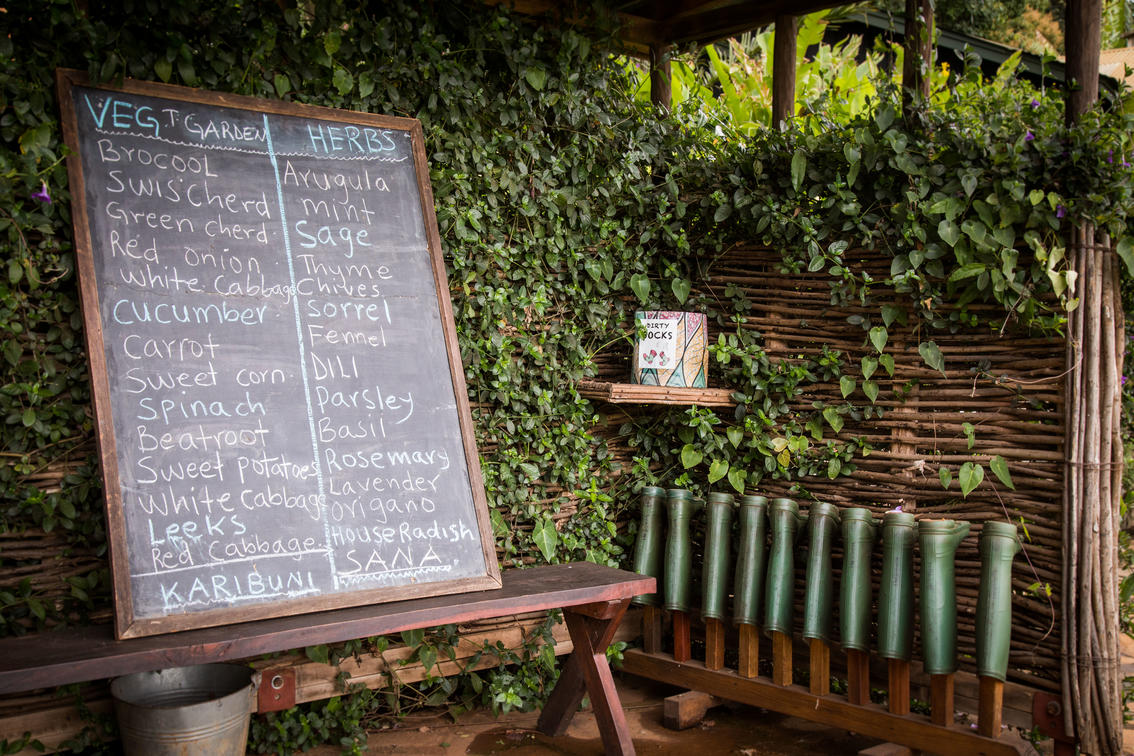 VEG.T GARDEN
Brocool
Swis'cherd
Green cherd
Red onion
White Cabbage
Cucumber
Carrot
Sweet corn
Spinach
Beatroot
Sweet potatoes
White Cabbag
Leeks
Red Cabbage
KARIBUNI
HERBS
Arugula
mint
Sage
Thyme
Chives
Sorrel
Fennel
Dill
Parsley
Basil
Rosemary
Lavender
origano
HouseRadish
SANA
DIRTY
SOCKS